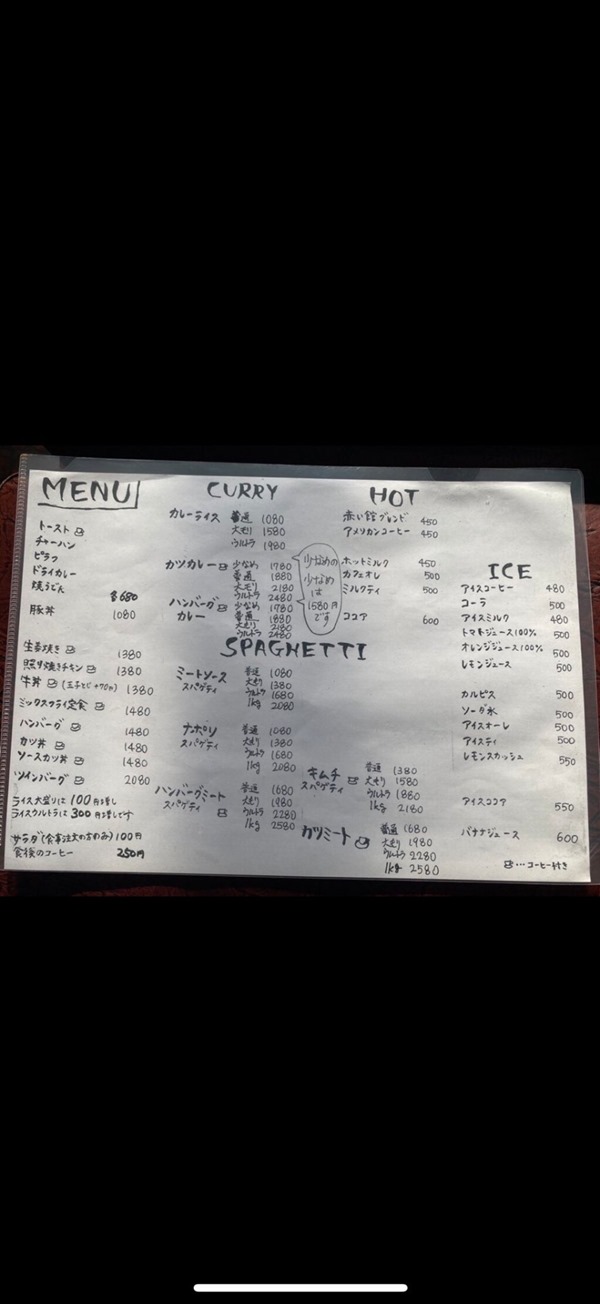 MENU
トースト
チャーハン
ピラフ
ドライカレー
焼うどん 680
豚丼 1080
生姜焼き 1380
照り焼きチキン 1380
牛丼 (玉子とじ+70円) 1380
ミックスフライ定食 1480
ハンバーグ 1480
カツ丼 1480
ソースカツ丼 1480
ツインバーグ 2080
ライス大盛りは100円増し
ライスウルトラは300円増しです
サラダ(食事注文の方のみ)100円
食後のコーヒー 250円
CURRY
カレーライス 普通 1080
大モリ 1580
ウルトラ 1980
カツカレー 少なめ 1780
普通 1880
大モリ 2180
ウルトラ 2480
ハンバーグ 少なめ 1780
カレー 普通 1880
大モリ 2180
ウルトラ 2480
少なめの
少なめ
は
1580円
です
SPAGHETTI
ミートソース 普通 1080
スパゲティ 大モリ 1380
ウルトラ 1680
1kg 2080
ナポリ 普通 1080
スパゲティ 大モリ 1380
ウルトラ 1680
1kg 2080
ハンバーグミート 普通 1680
スパゲティ 大モリ 1980
ウルトラ 2280
1kg 2580
キムチ 普通 1380
スパゲティ 大モリ 1580
ウルトラ 1880
1kg 2180
カツミート 普通 1680
大モリ 1980
ウルトラ 2280
1kg 2580
HOT
赤い館ブレンド 450
アメリカンコーヒー 450
ホットミルク 450
カフェオレ 500
ミルクティ 500
ココア 600
ICE
アイスコーヒー 480
コーラ 500
アイスミルク 480
トマトジュース100% 500
オレンジジュース100% 500
レモンジュース 500
カルピス 500
ソーダ水 500
アイスオーレ 500
アイスティ 500
レモンスカッシュ 550
アイスココア 550
バナナジュース 600
…コーヒー付き